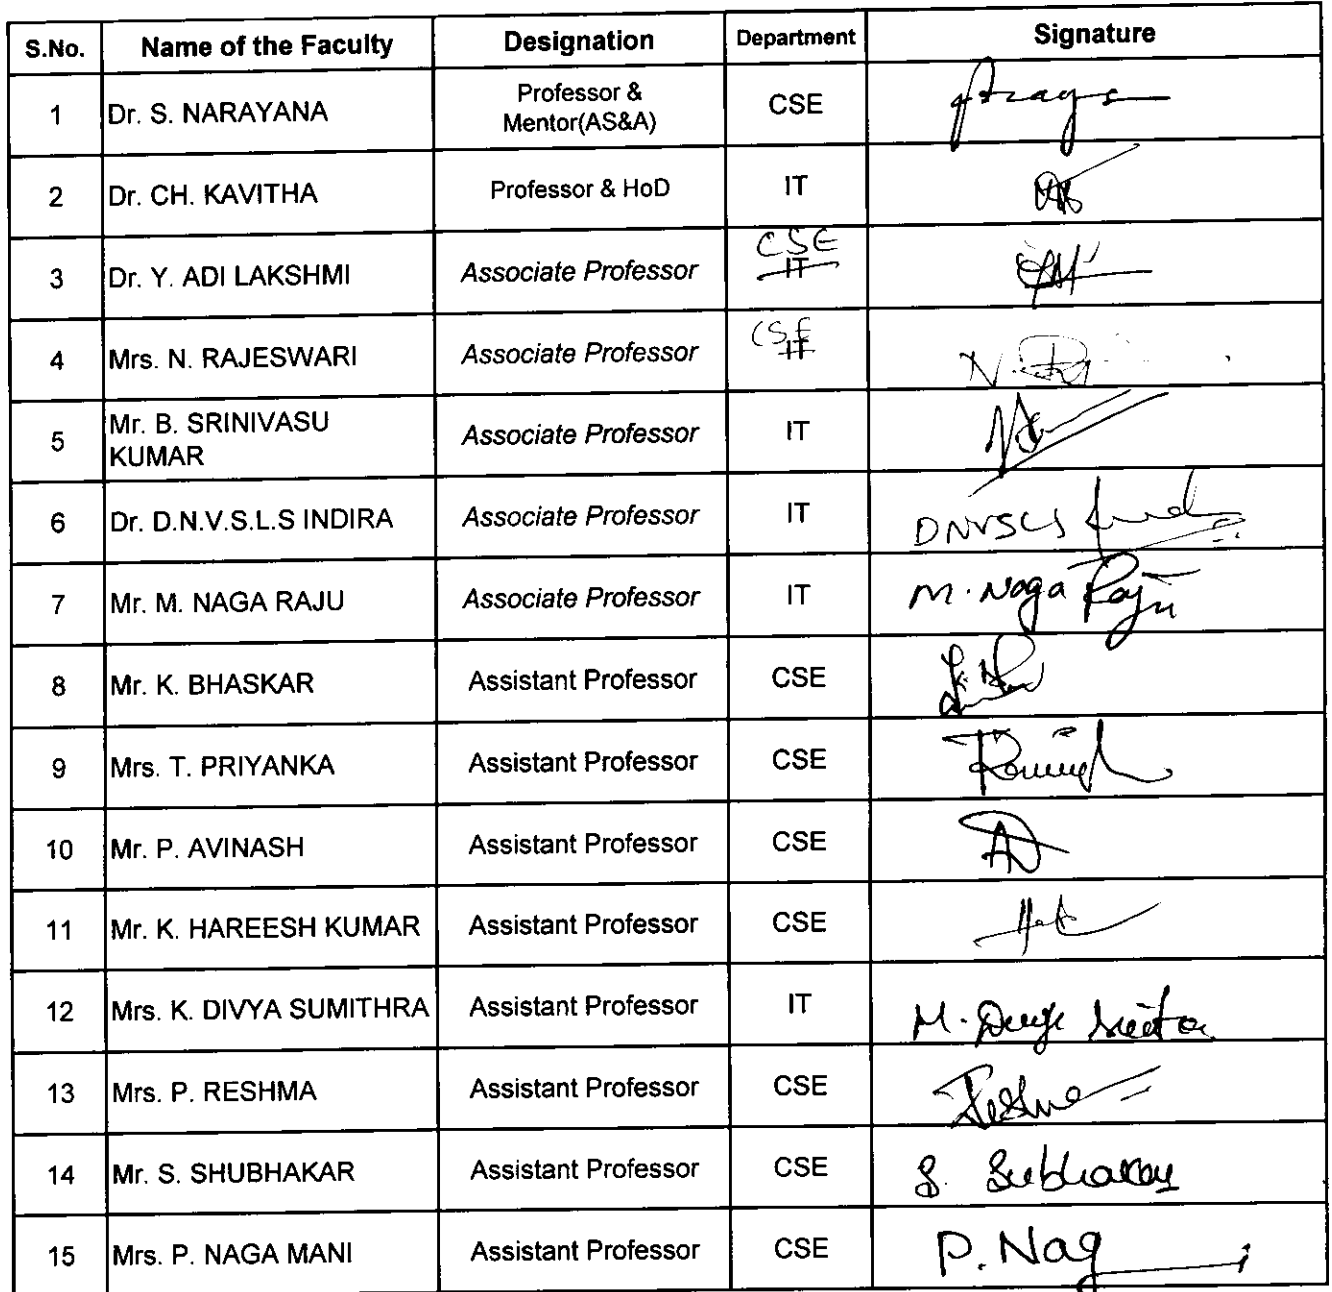 S.No. Name of the Faculty Designation Department Signature
1 Dr. S. NARAYANA Professor & Mentor(AS&A) CSE
2 Dr. CH. KAVITHA Professor & HoD IT
3 Dr. Y. ADI LAKSHMI Associate Professor CSE IT
4 Mrs. N. RAJESWARI Associate Professor CSE IT
5 Mr. B. SRINIVASU KUMAR Associate Professor IT
6 Dr. D.N.V.S.L.S INDIRA Associate Professor IT DNVSLS
7 Mr. M. NAGA RAJU Associate Professor IT M. Naga Raju
8 Mr. K. BHASKAR Assistant Professor CSE
9 Mrs. T. PRIYANKA Assistant Professor CSE
10 Mr. P. AVINASH Assistant Professor CSE
11 Mr. K. HAREESH KUMAR Assistant Professor CSE
12 Mrs. K. DIVYA SUMITHRA Assistant Professor IT
13 Mrs. P. RESHMA Assistant Professor CSE
14 Mr. S. SHUBHAKAR Assistant Professor CSE S. Subhakar
15 Mrs. P. NAGA MANI Assistant Professor CSE P. Nag